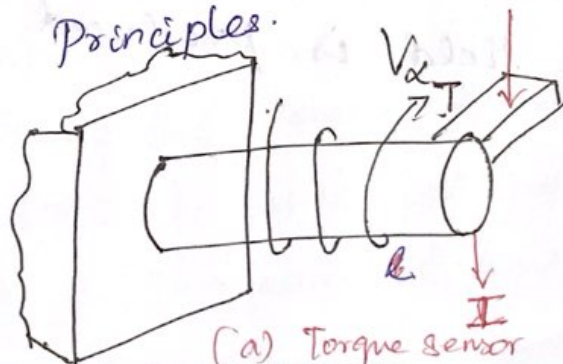 Principles.
V α T
l
I
(a) Torque sensor